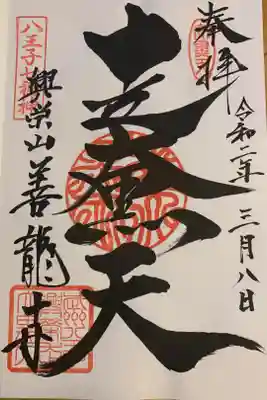 奉拝
令和二年 三月八日
走大黒天
八王子七福神
興栄山 善龍寺